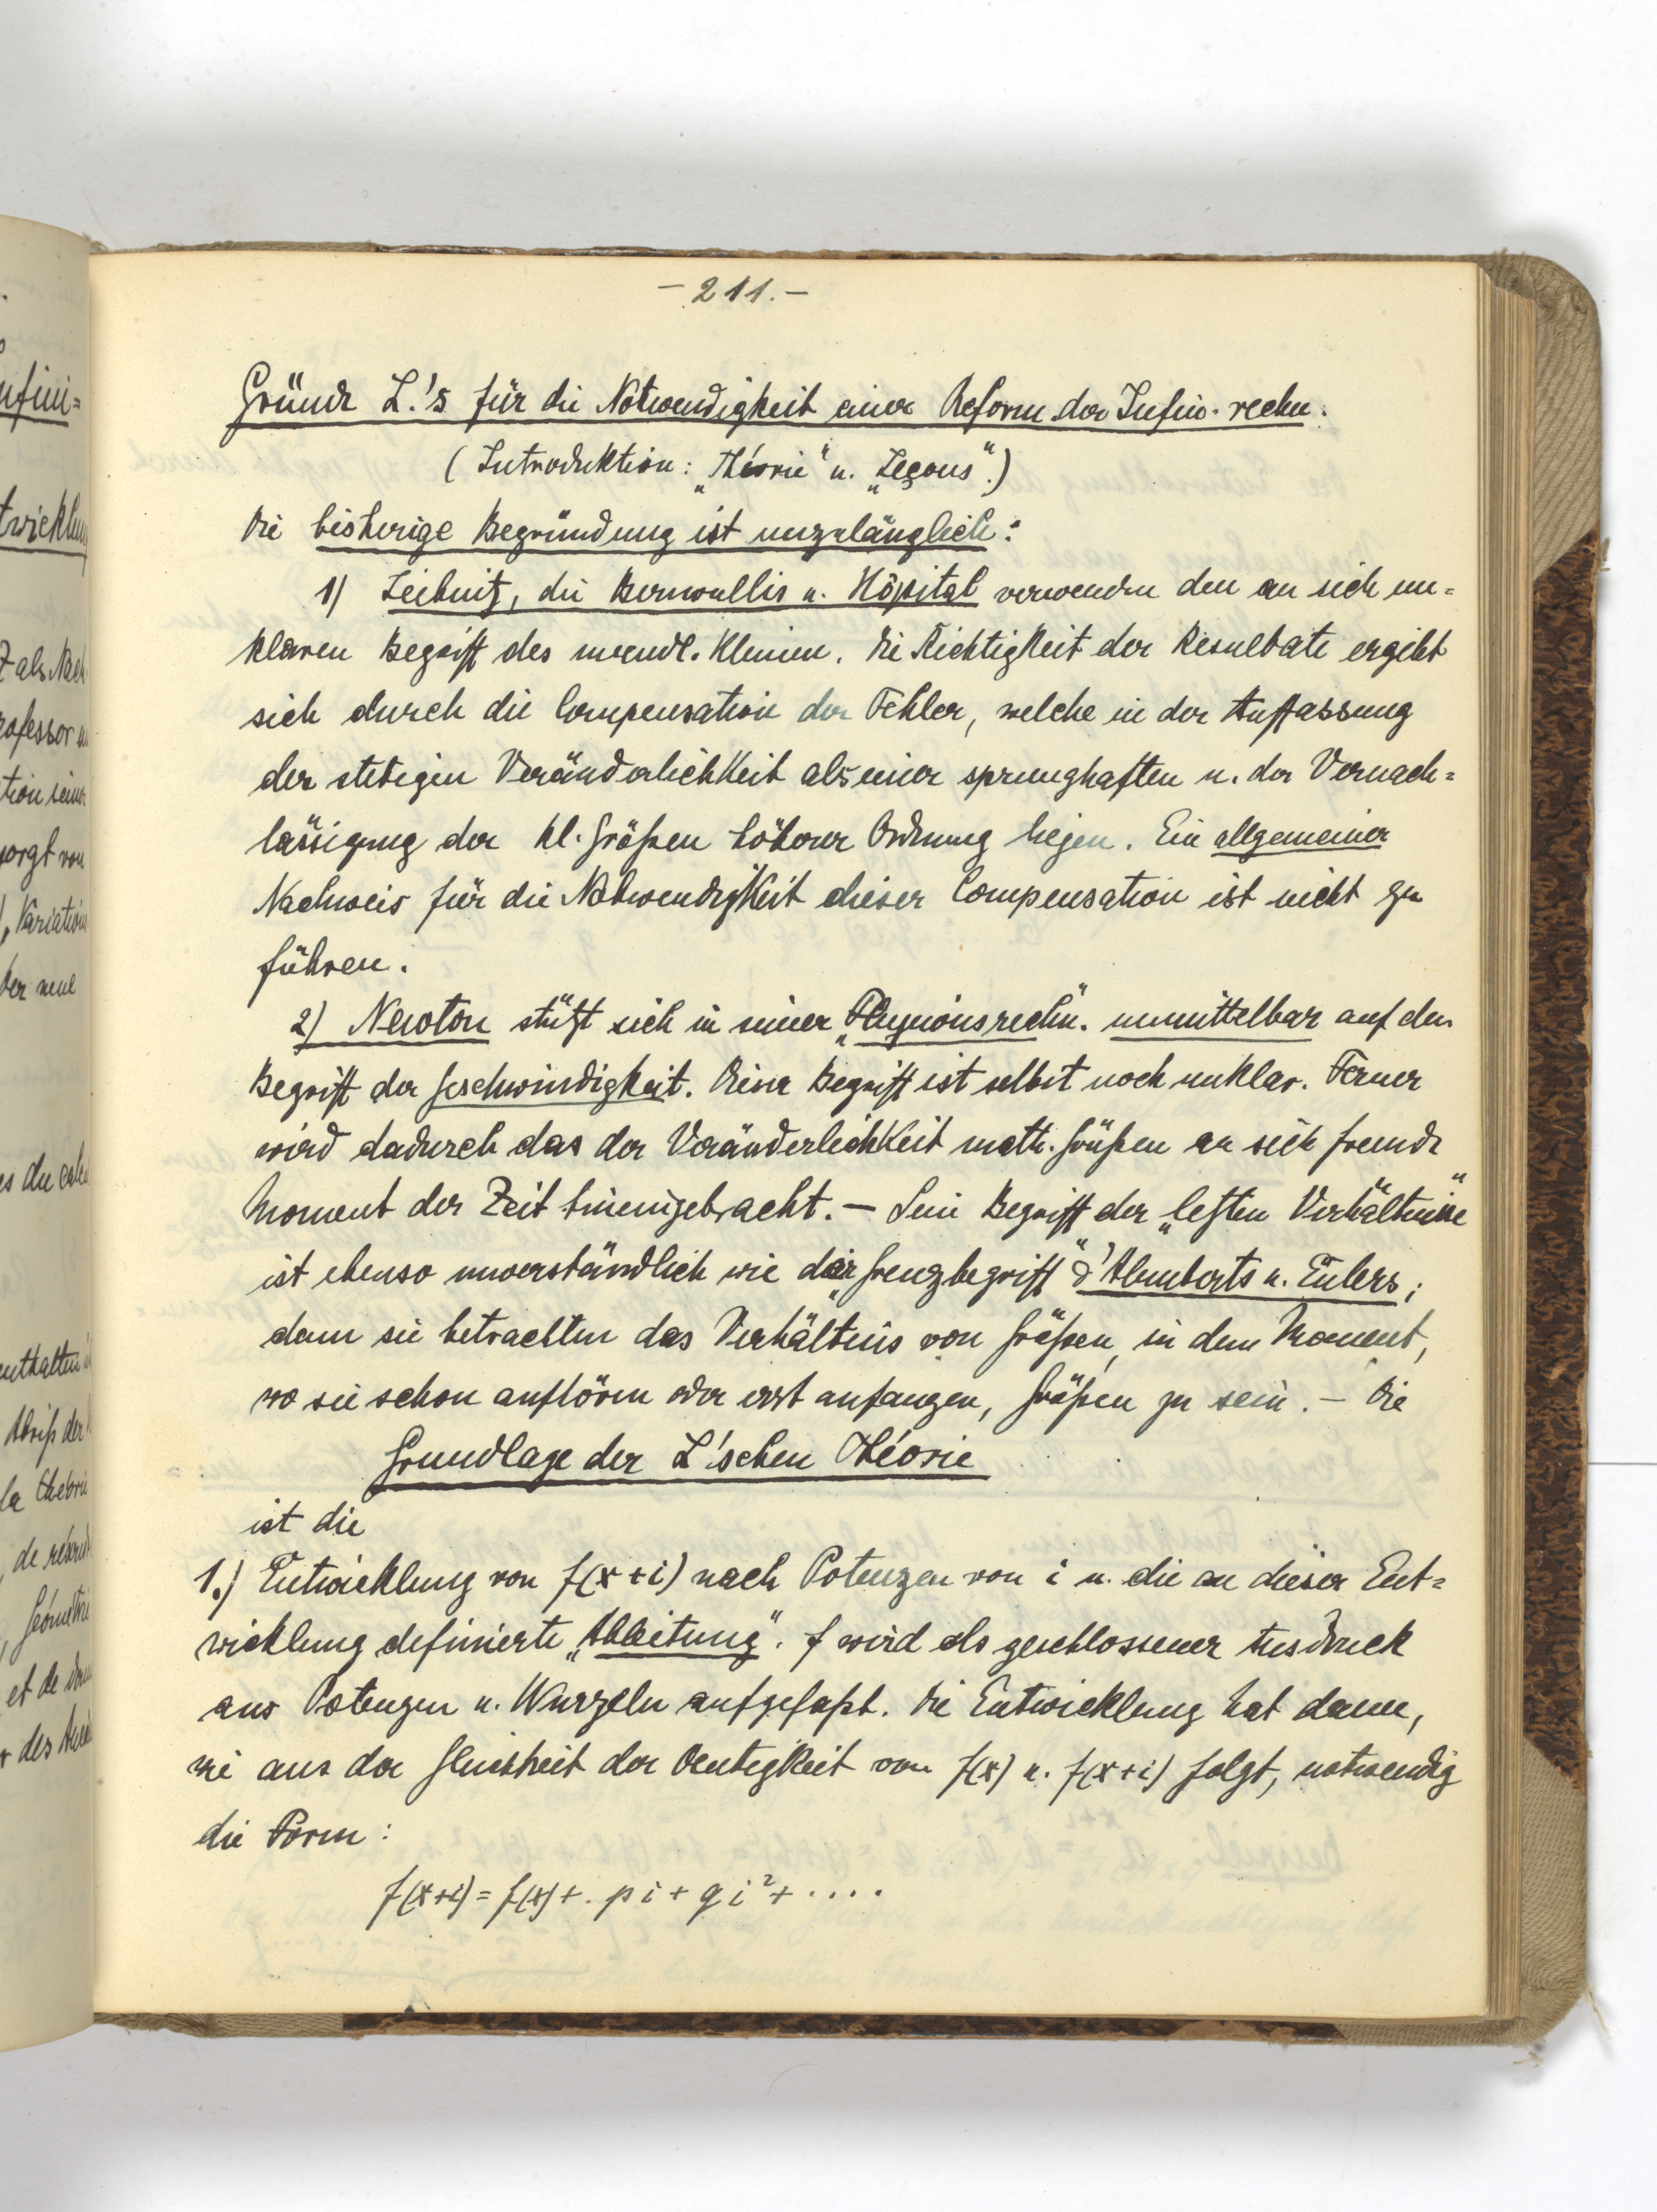 - 211. -
Gründe L.'s für die Notwendigkeit einer Reform der Infin. rechn.
(Introduktion: „Théorie" u. „Leçons".)
Die bisherige Begründung ist unzulänglich:
1) Leibnitz, die Bernoullis u. Hôpital verwenden den an sich un=
klaren Begriff des unendl. Kleinen. Die Richtigkeit der Resultate ergibt
sich durch die Compensation der Fehler, welche in der Auffassung
der stetigen Veränderlichkeit als einer sprunghaften u. der Vernach=
lässigung der kl. Größen höherer Ordnung liegen. Ein allgemeiner
Nachweis für die Notwendigkeit dieser Compensation ist nicht zu
führen.
2) Newton stützt sich in seiner „Fluxionsrechn." unmittelbar auf den
Begriff der Geschwindigkeit. Dieser Begriff ist selbst noch unklar. Ferner
wird dadurch das der Veränderlichkeit math. Größen an sich fremde
Moment der Zeit hineingebracht. — Sein Begriff der „letzten Verhältnisse"
ist ebenso unverständlich wie der „Grenzbegriff" d'Alemberts u. Eulers;
denn sie betrachten das Verhältnis von Größen, in dem Moment,
wo sie schon aufhören oder erst anfangen, Größen zu sein. — Die
Grundlage der L'schen Théorie
ist die
1.) Entwicklung von f(x+i) nach Potenzen von i u. die an dieser Ent=
wicklung definierte „Ableitung". f wird als geschlossener Ausdruck
aus Potenzen u. Wurzeln aufgefaßt. Die Entwicklung hat dann,
wie aus der Gleichheit der Deutigkeit von f(x) u. f(x+i) folgt, notwendig
die Form:
f(x+i) = f(x) + . p i + q i² + ....
infini=
twicklung
als Nach
professor
tion seiner
sorgt von
Variations
der neue
es du calcul
enthalten
Abriß der
la théorie
de
Géométrie
et de
des